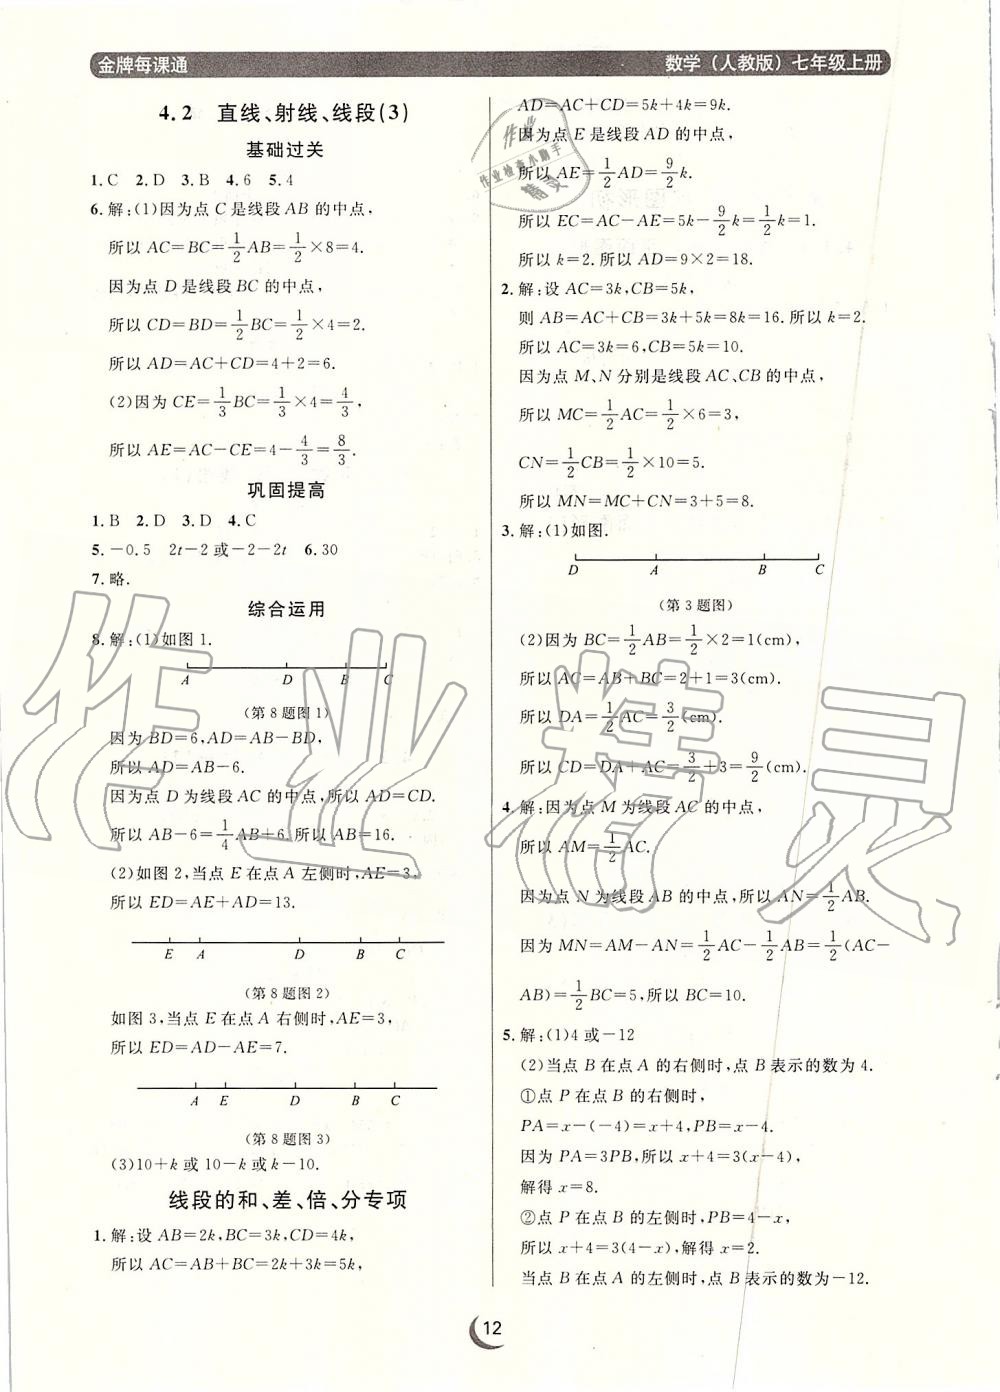 金牌每课通
数学（人教版）七年级上册
4.2 直线、射线、线段(3)
基础过关
1.C 2.D 3.B 4.6 5.4
6.解:(1)因为点 C 是线段 AB 的中点,
所以 AC=BC=1/2AB=1/2×8=4.
因为点 D 是线段 BC 的中点,
所以 CD=BD=1/2BC=1/2×4=2.
所以 AD=AC+CD=4+2=6.
(2)因为 CE=1/3BC=1/3×4=4/3,
所以 AE=AC-CE=4-4/3=8/3.
巩固提高
1.B 2.D 3.D 4.C
5.-0.5 2t-2 或-2-2t 6.30
7.略.
综合运用
8.解:(1)如图 1.
A D B C
(第 8 题图 1)
因为 BD=6,AD=AB-BD,
所以 AD=AB-6.
因为点 D 为线段 AC 的中点,所以 AD=CD.
所以 AB-6=1/4AB+6.所以 AB=16.
(2)如图 2,当点 E 在点 A 左侧时,AE=3,
所以 ED=AE+AD=13.
E A D B C
(第 8 题图 2)
如图 3,当点 E 在点 A 右侧时,AE=3,
所以 ED=AD-AE=7.
A E D B C
(第 8 题图 3)
(3)10+k 或 10-k 或 k-10.
线段的和、差、倍、分专项
1.解:设 AB=2k,BC=3k,CD=4k,
所以 AC=AB+BC=2k+3k=5k,
AD=AC+CD=5k+4k=9k.
因为点 E 是线段 AD 的中点,
所以 AE=1/2AD=9/2k.
所以 EC=AC-AE=5k-9/2k=1/2k=1.
所以 k=2.所以 AD=9×2=18.
2.解:设 AC=3k,CB=5k,
则 AB=AC+CB=3k+5k=8k=16.所以 k=2.
所以 AC=3k=6,CB=5k=10.
因为点 M、N 分别是线段 AC、CB 的中点,
所以 MC=1/2AC=1/2×6=3,
CN=1/2CB=1/2×10=5.
所以 MN=MC+CN=3+5=8.
3.解:(1)如图.
D A B C
(第 3 题图)
(2)因为 BC=1/2AB=1/2×2=1(cm),
所以 AC=AB+BC=2+1=3(cm).
所以 DA=1/2AC=3/2(cm).
所以 CD=DA+AC=3/2+3=9/2(cm).
4.解:因为点 M 为线段 AC 的中点,
所以 AM=1/2AC.
因为点 N 为线段 AB 的中点,所以 AN=1/2AB.
因为 MN=AM-AN=1/2AC-1/2AB=1/2(AC-
AB)=1/2BC=5,所以 BC=10.
5.解:(1)4 或-12
(2)当点 B 在点 A 的右侧时,点 B 表示的数为 4.
①点 P 在点 B 的右侧时,
PA=x-(-4)=x+4,PB=x-4.
因为 PA=3PB,所以 x+4=3(x-4),
解得 x=8.
②点 P 在点 B 的左侧时,PB=4-x,
所以 x+4=3(4-x),解得 x=2.
当点 B 在点 A 的左侧时,点 B 表示的数为-12.
12
作业精灵
作业
作业检查小助手
精灵